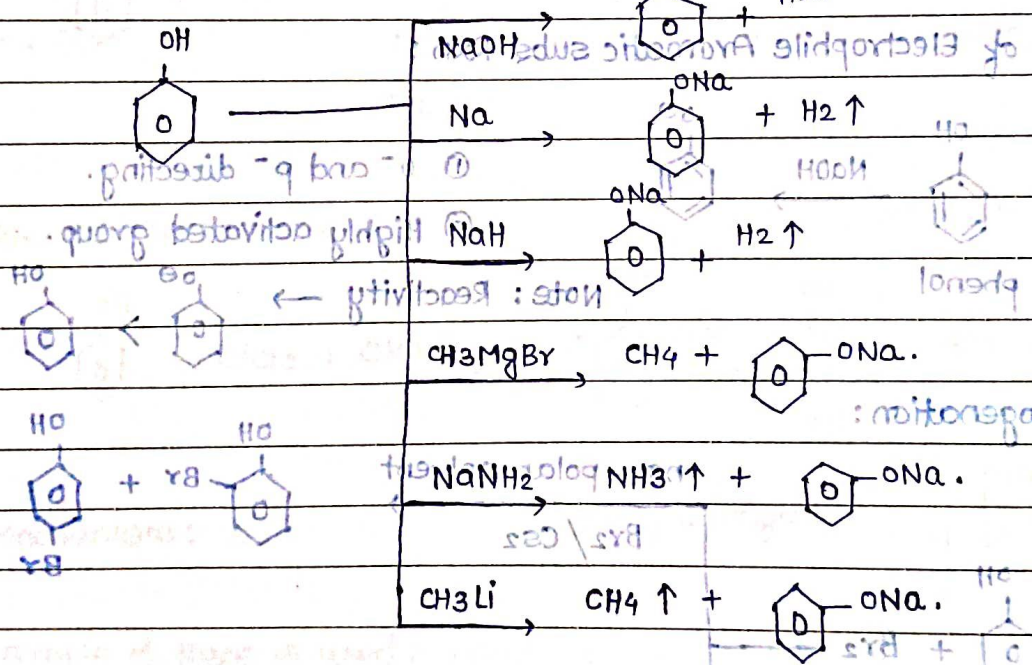 OH
NaOH +
Na ONa + H2 ↑
NaH ONa + H2 ↑
CH3MgBr CH4 + ONa.
NaNH2 NH3 ↑ + ONa.
CH3Li CH4 ↑ + ONa.